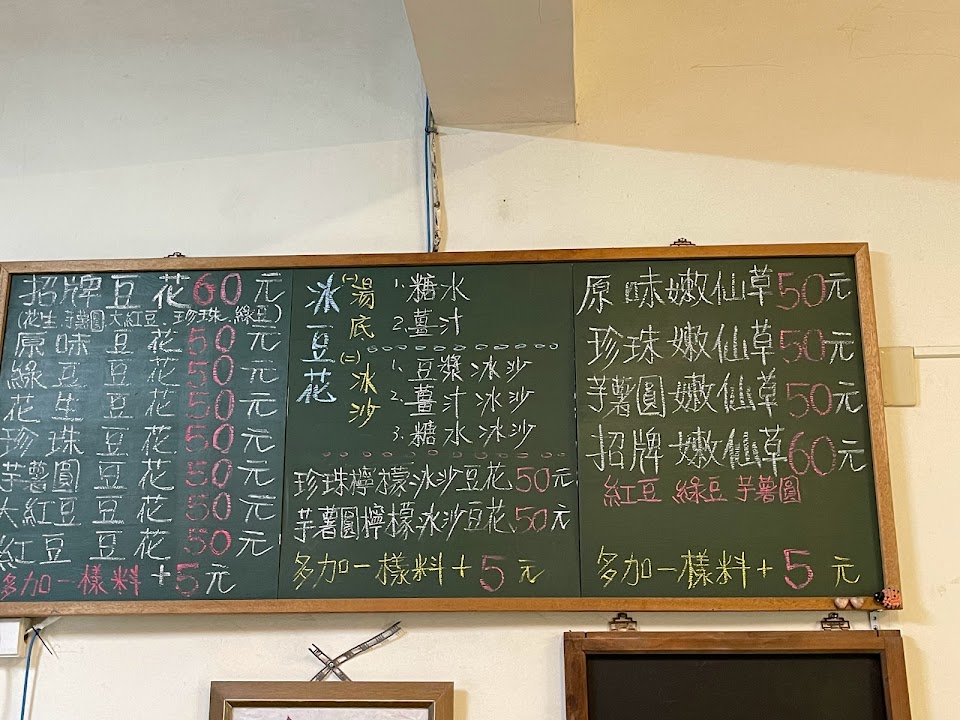 招牌豆花60元
(花生.芋薯圓.大紅豆、珍珠.綠豆)
原味豆花50元
綠豆豆花50元
花生豆花50元
珍珠豆花50元
芋薯圓豆花50元
大紅豆豆花50元
紅豆豆花50元
多加一樣料+5元
冰豆花
(一)湯底
1.糖水
2.薑汁
(二)冰沙
1.豆漿冰沙
2.薑汁冰沙
3.糖水冰沙
珍珠檸檬冰沙豆花50元
芋薯圓檸檬冰沙豆花50元
多加一樣料+5元
原味嫩仙草50元
珍珠嫩仙草50元
芋薯圓嫩仙草50元
招牌嫩仙草60元
紅豆 綠豆 芋薯圓
多加一樣料+5元